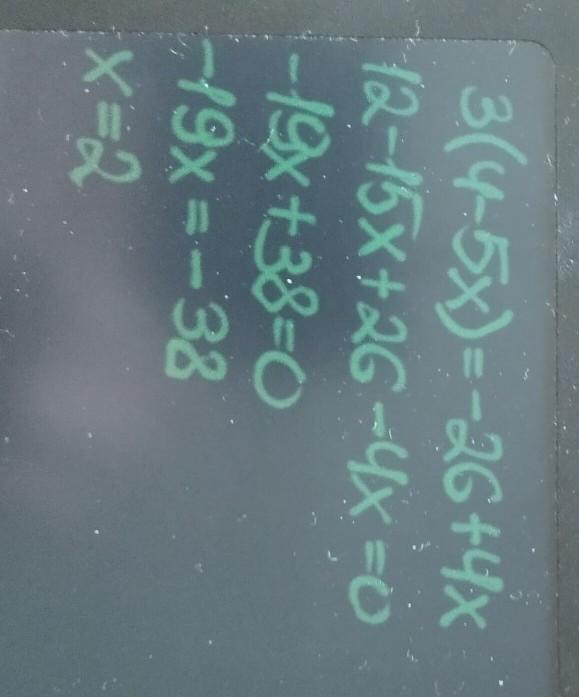 3(4-5x)=-26+4x
12-15x+26-4x=0
-19x+38=0
-19x=-38
x=2